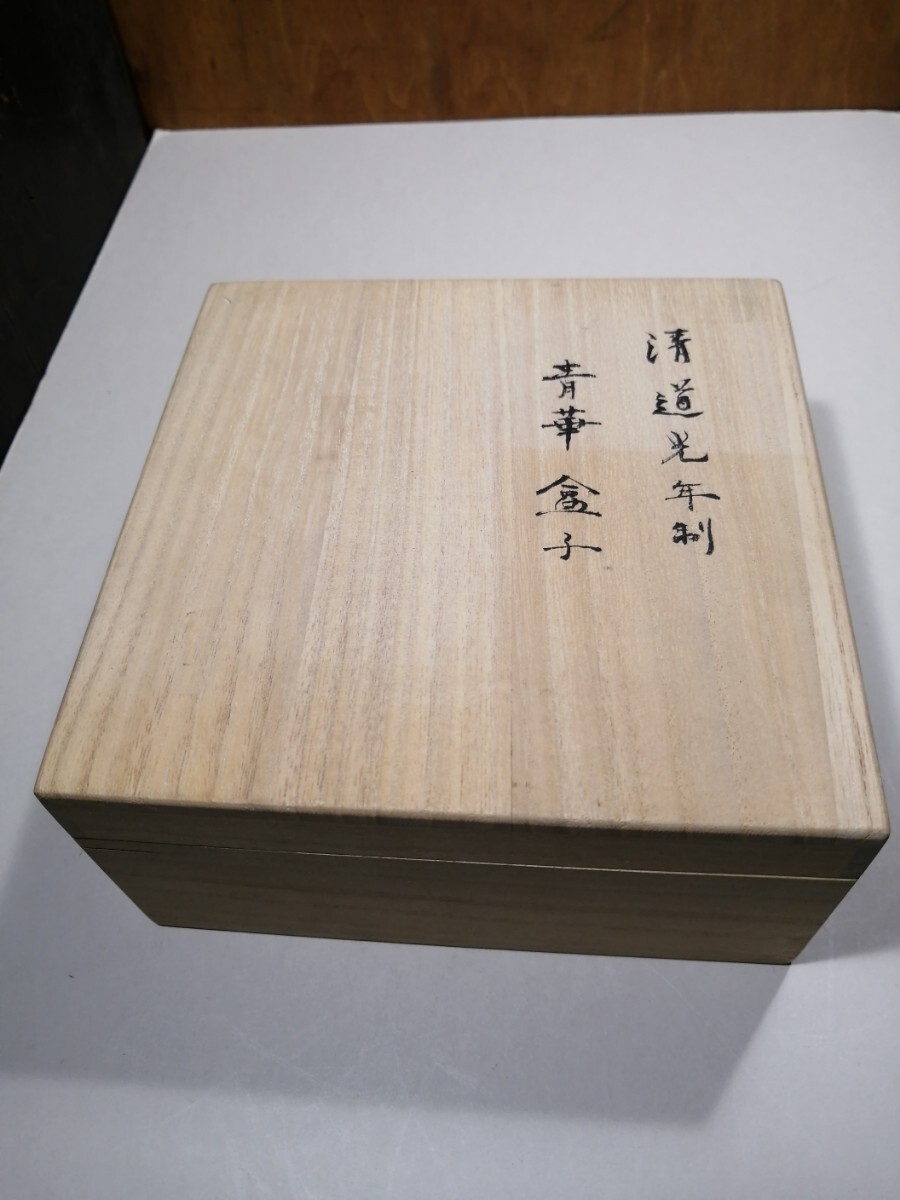 清道光年制
青華盒子